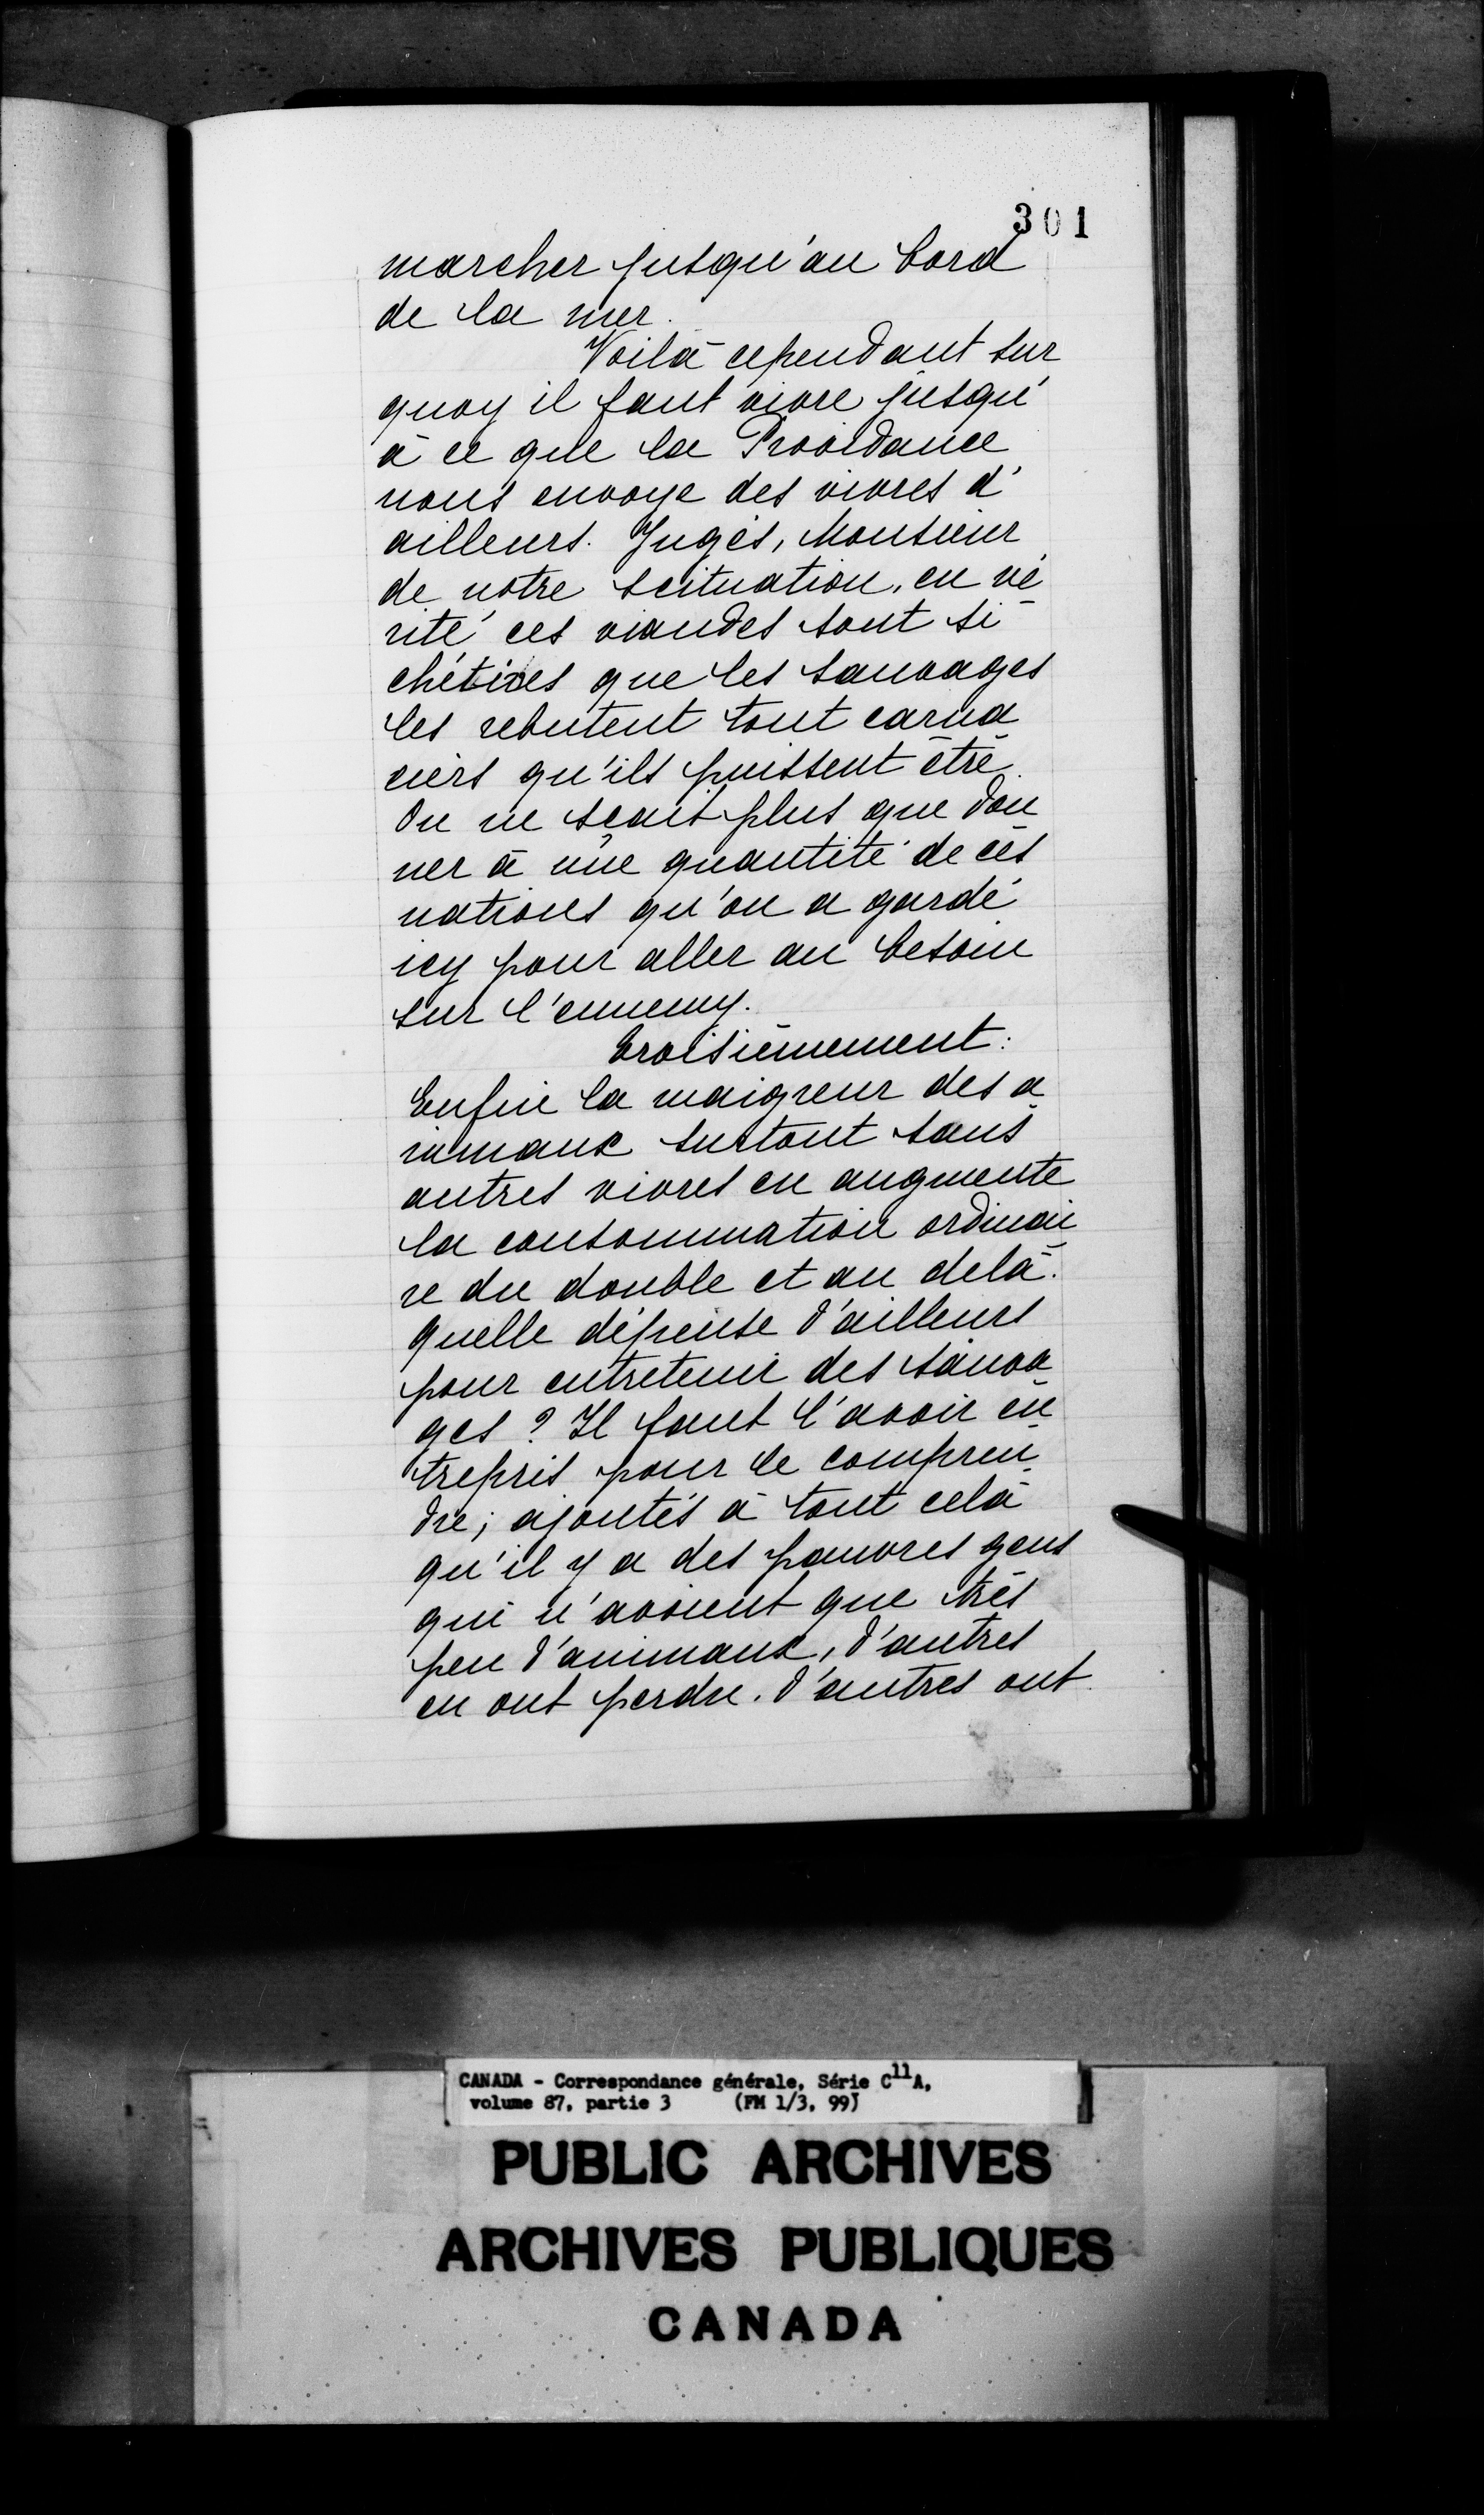 301
marcher jusqu'au bord
de la mer.
Voilà cependant sur
quoy il faut vivre jusqu'
à ce que la Providance
nous envoye des vivres d'
ailleurs. Jugés, Monsieur
de notre scituation, en vé
rité ces viandes sont si
chétives que les sauvages
les rebutent tout carna
ciers qu'ils puissent être.
On ne scait plus que don
ner à une quantité de ces
nations qu'on a gardé
icy pour aller au besoin
sur l'ennemy.
Troisièmement:
Enfin la maigreur des a
nimaux surtout sans
autres vivres en augmente
la consommation ordinai
re du double et au delà.
quelle dépense d'ailleurs
pour entretenir des sauva
ges? Il faut l'avoir en
trepris pour le compren
dre; ajoutés à tout celà
qu'il y a des pauvres gens
qui n'avoient que très
peu d'animaux, d'autres
en ont perdu. d'autres ont
CANADA - Correspondance générale, Série C11A,
volume 87, partie 3 (FM 1/3, 99)
PUBLIC ARCHIVES
ARCHIVES PUBLIQUES
CANADA